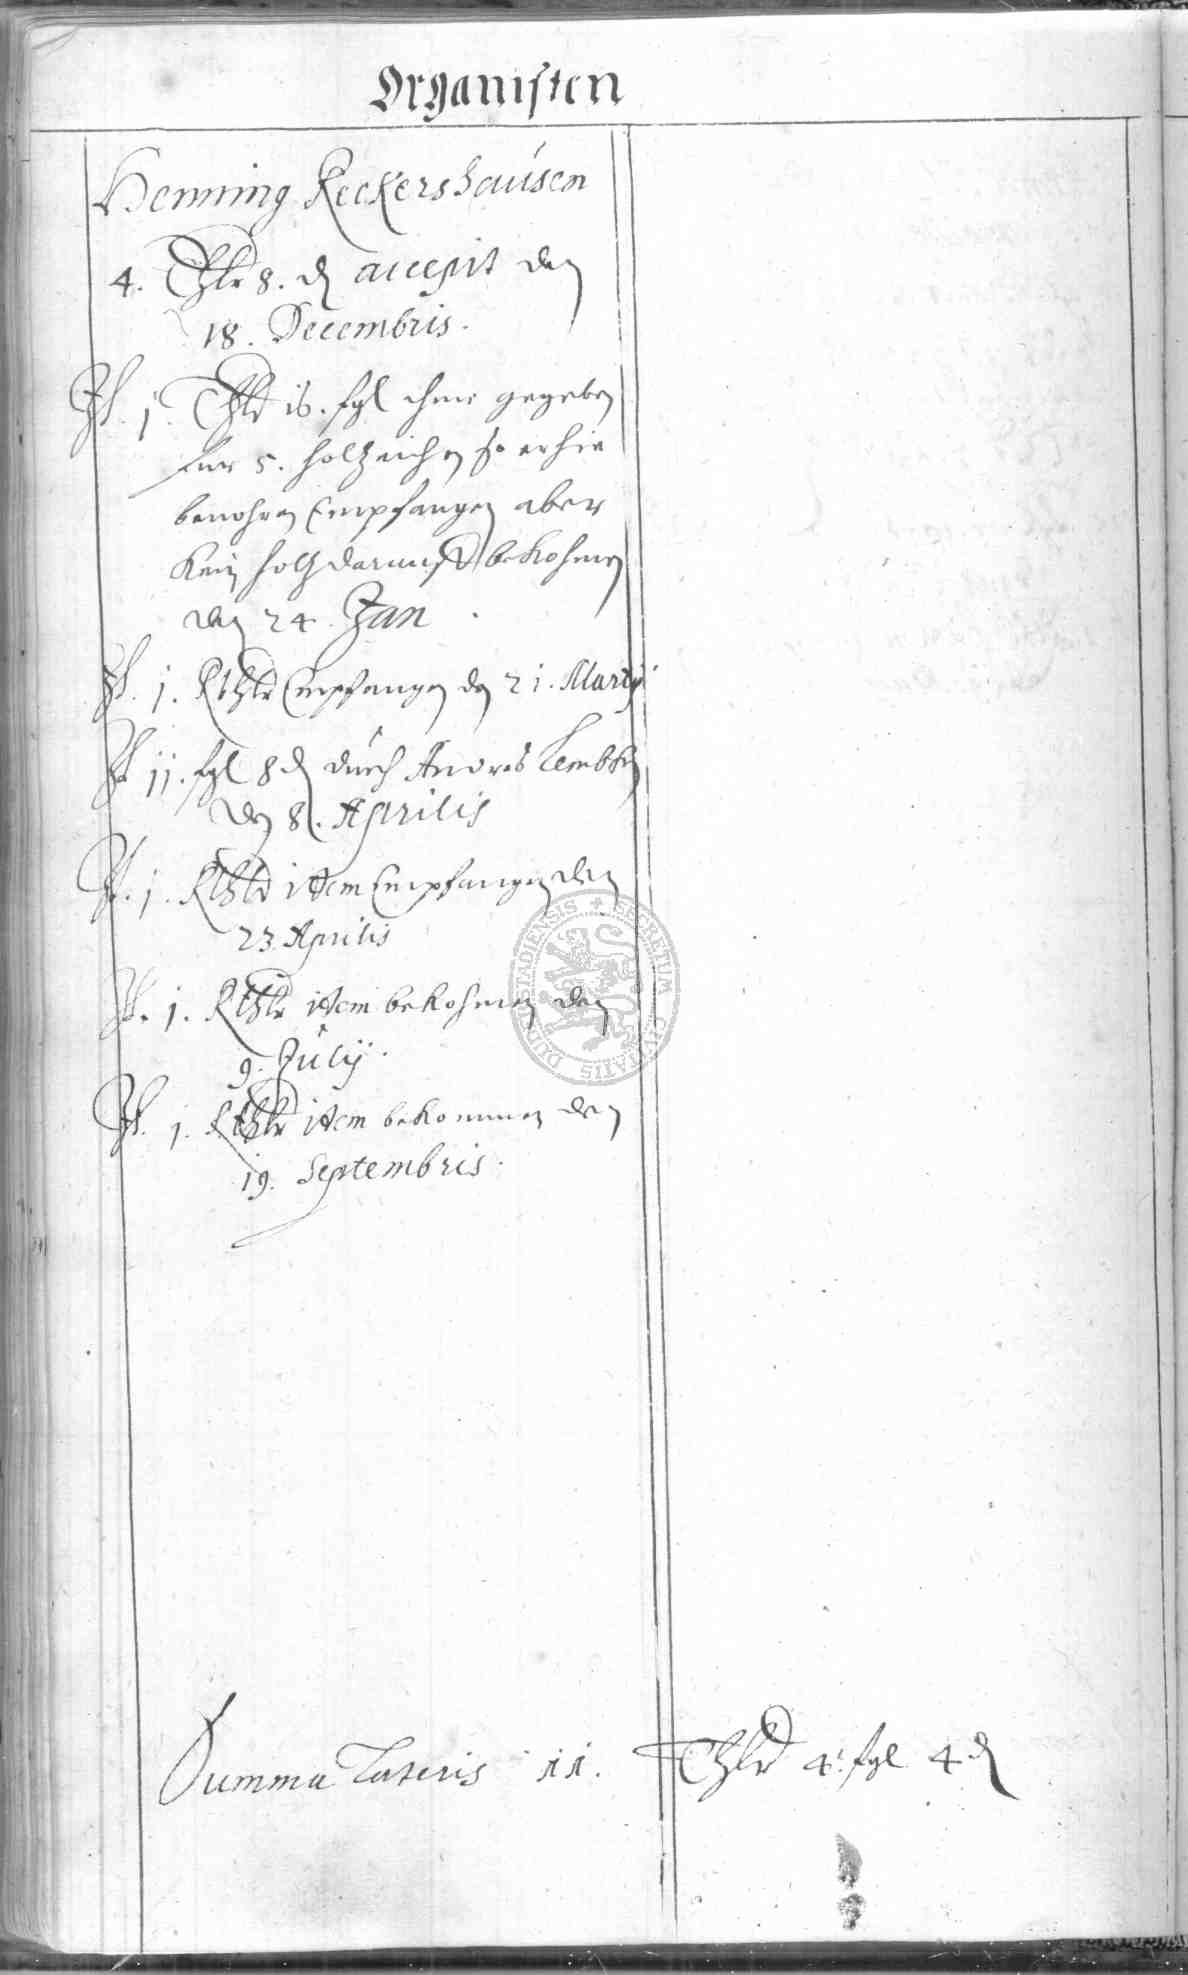 Organisten
Henning Reckershausen
4. Thlr 8. d accepit den
18. Decembris.
It. 1. Thlr 16. ßgl ihme gegeben
für 5. holtzeichen so er hie
bevohren Empfangen aber
kein holtz darauff bekohmen
den 24. Jan
It. 1. Rthlr Empfangen den 21. Martij
It 11. ßgl 8 d durch Andres Lembke
den 8. Aprilis
It. 1. Rthlr item Empfangen den
23 Aprilis
It. 1. Rthlr item bekohmen den
9. Julij.
It. 1. Rthlr item bekommen den
19. Septembris.
Summa Lateris 11. Thlr 4. ßgl 4 d
SECRETUM CIVITATIS DUDERSTADIENSIS